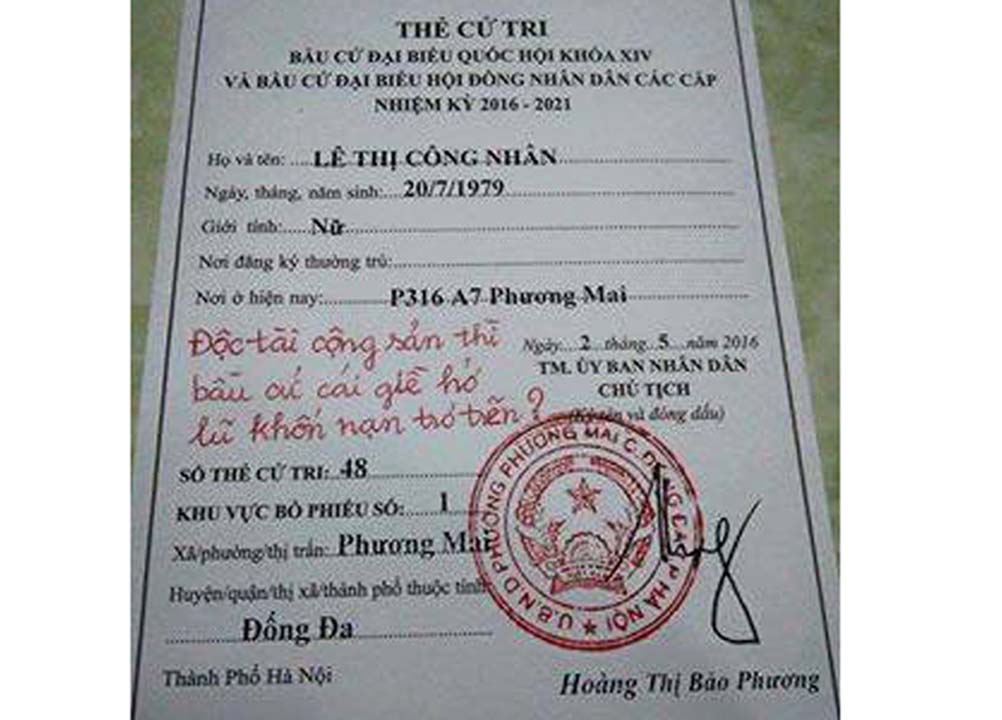 THẺ CỬ TRI
BẦU CỬ ĐẠI BIỂU QUỐC HỘI KHÓA XIV
VÀ BẦU CỬ ĐẠI BIỂU HỘI ĐỒNG NHÂN DÂN CÁC CẤP
NHIỆM KỲ 2016 - 2021
Họ và tên: ....LÊ THỊ CÔNG NHÂN
Ngày, tháng, năm sinh:...20/7/1979
Giới tính:....Nữ
Nơi đăng ký thường trú:
Nơi ở hiện nay:..........P316 A7 Phương Mai
Độc tài cộng sản thì
bầu cử cái giề hở
lũ khốn nạn trơ trẽn?
Ngày...2...tháng...5...năm 2016
TM. ỦY BAN NHÂN DÂN
CHỦ TỊCH
(Ký tên và đóng dấu)
SỐ THẺ CỬ TRI: 48
KHU VỰC BỎ PHIẾU SỐ: 1
Xã/phường/thị trấn: Phương Mai
Huyện/quận/thị xã/thành phố thuộc tỉnh:
Đống Đa
Thành Phố Hà Nội
U.B.N.D PHƯỜNG PHƯƠNG MAI
HÀ NỘI
Hoàng Thị Bảo Phương